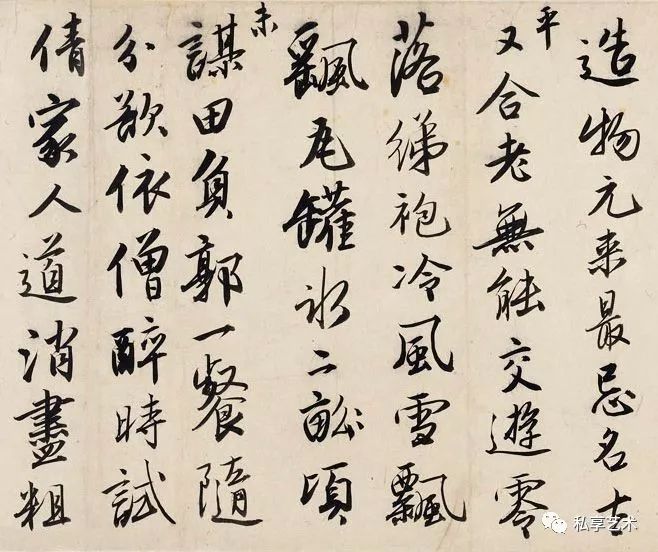 造物元来最忌名太
平又合老無能交遊零
落綈袍冷風雪飄
飄瓦罐冰二畝頃
未謀田負郭一餐隨
分欲依僧醉時試
倩家人道消盡粗
私享艺术